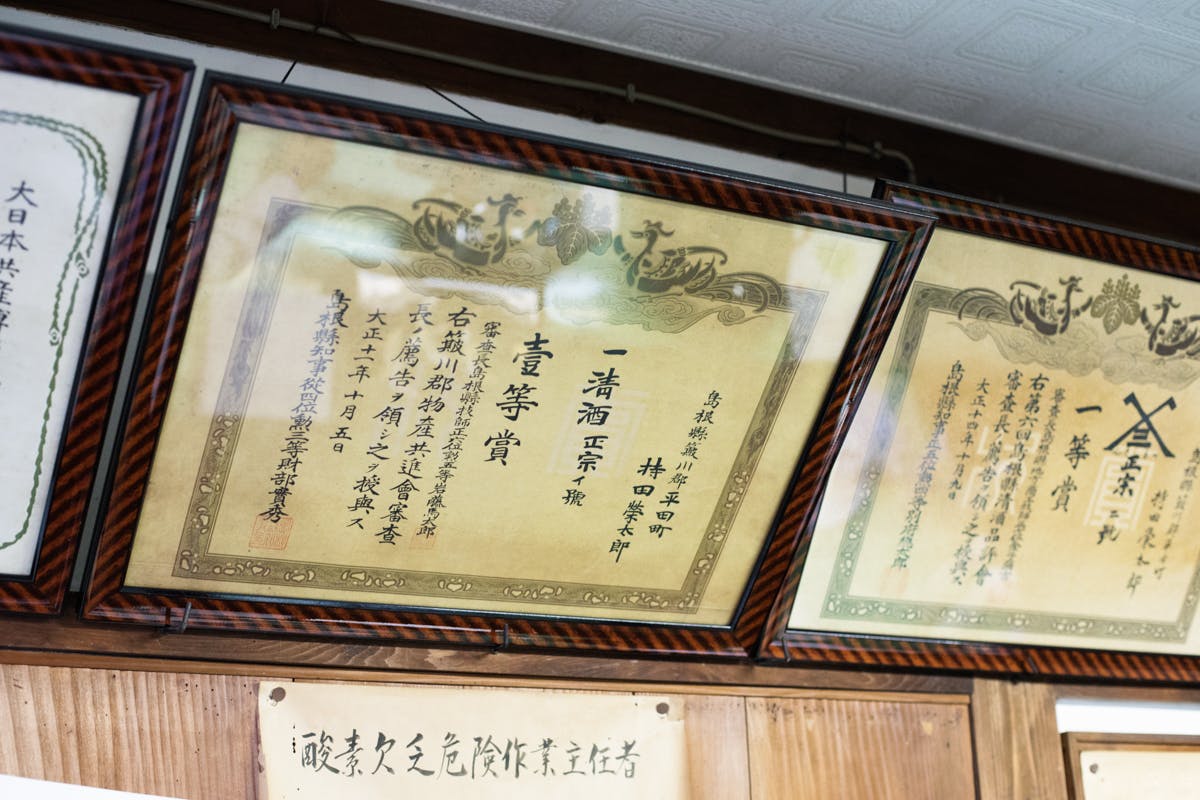 島根縣簸川郡平田町
持田榮太郎
一清酒 正宗イ號
壹等賞
審査長島根縣技師正六位勲五等岩藤馬太郎
右簸川郡物產共進會審查
長ノ薦告ヲ領シ之ヲ授與ス
大正十一年十月五日
島根縣知事從四位勲三等財部實秀
正宗
一等賞
右第六回島根縣清酒品評會
審査長ノ薦告ヲ領シ之ヲ授與ス
大正十四年十月九日
大日本共産
酸素欠乏危険作業主任者